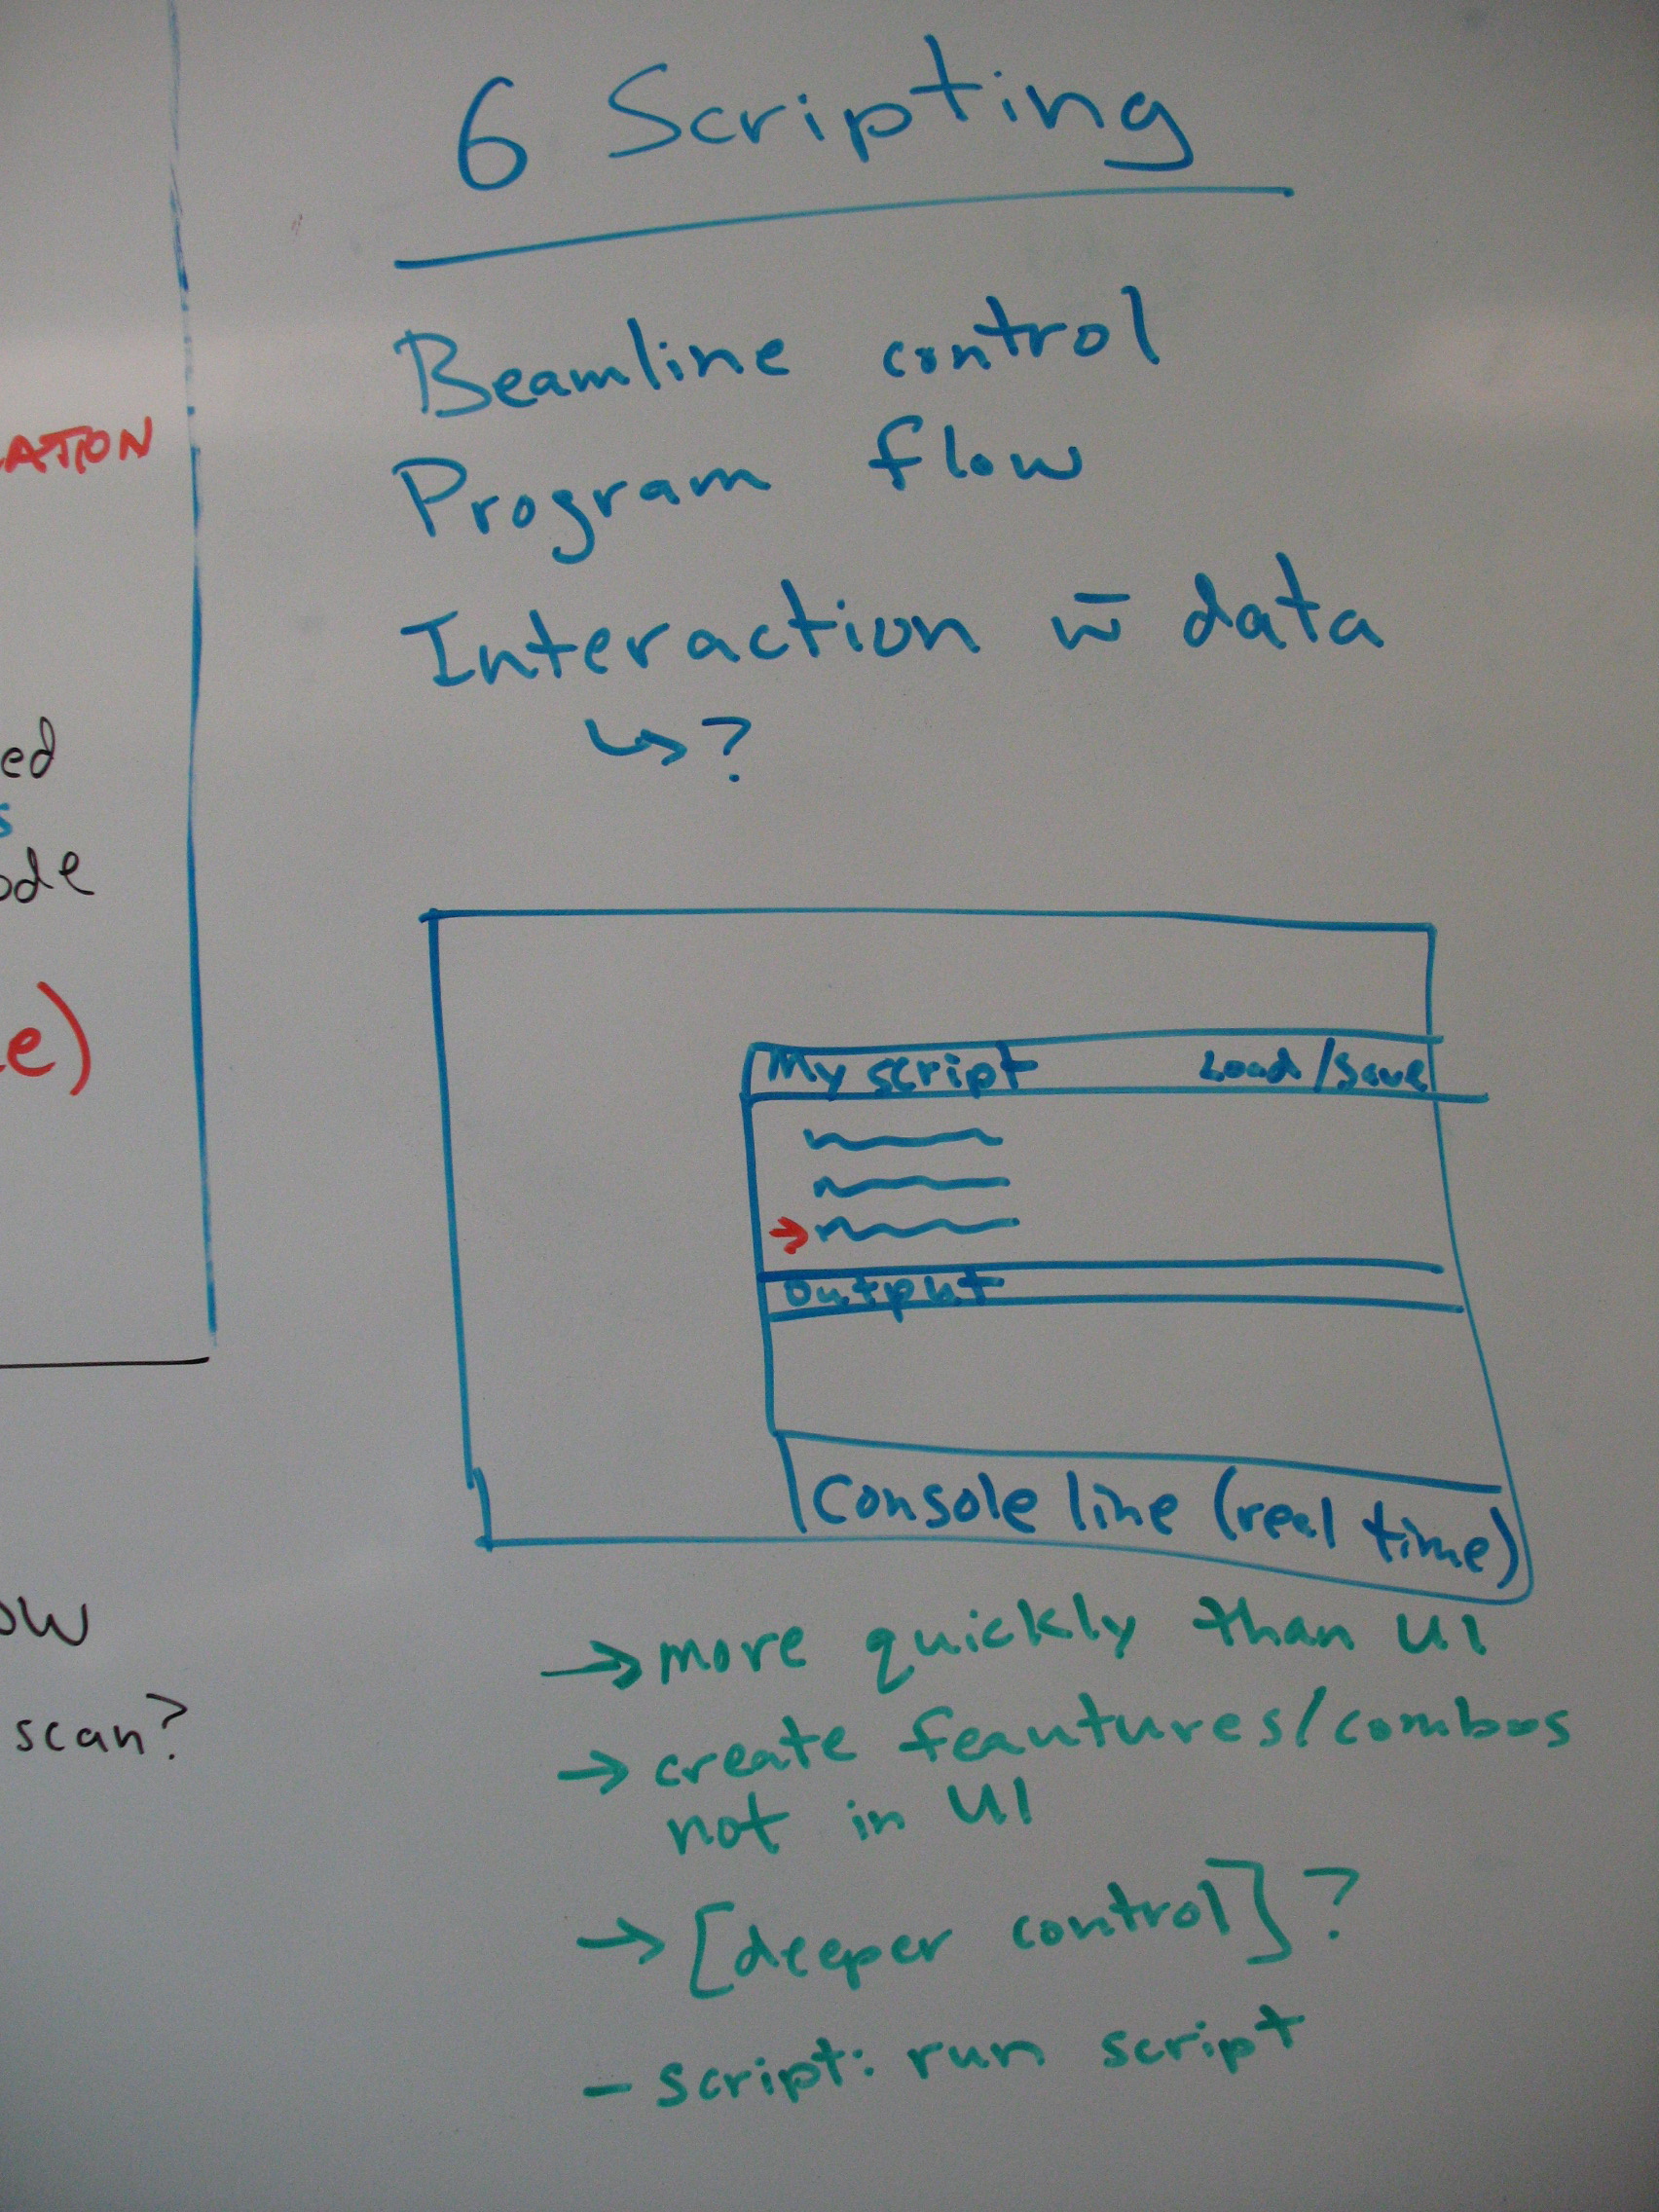 6 Scripting
Beamline control
Program flow
Interaction w̄ data
↳ ?
My script Load/Save
→
Output
Console line (real time)
→ more quickly than UI
→ create feautures/combos
not in UI
→ [deeper control]?
- script: run script
ATION
ed
s
ode
e)
ow
scan?